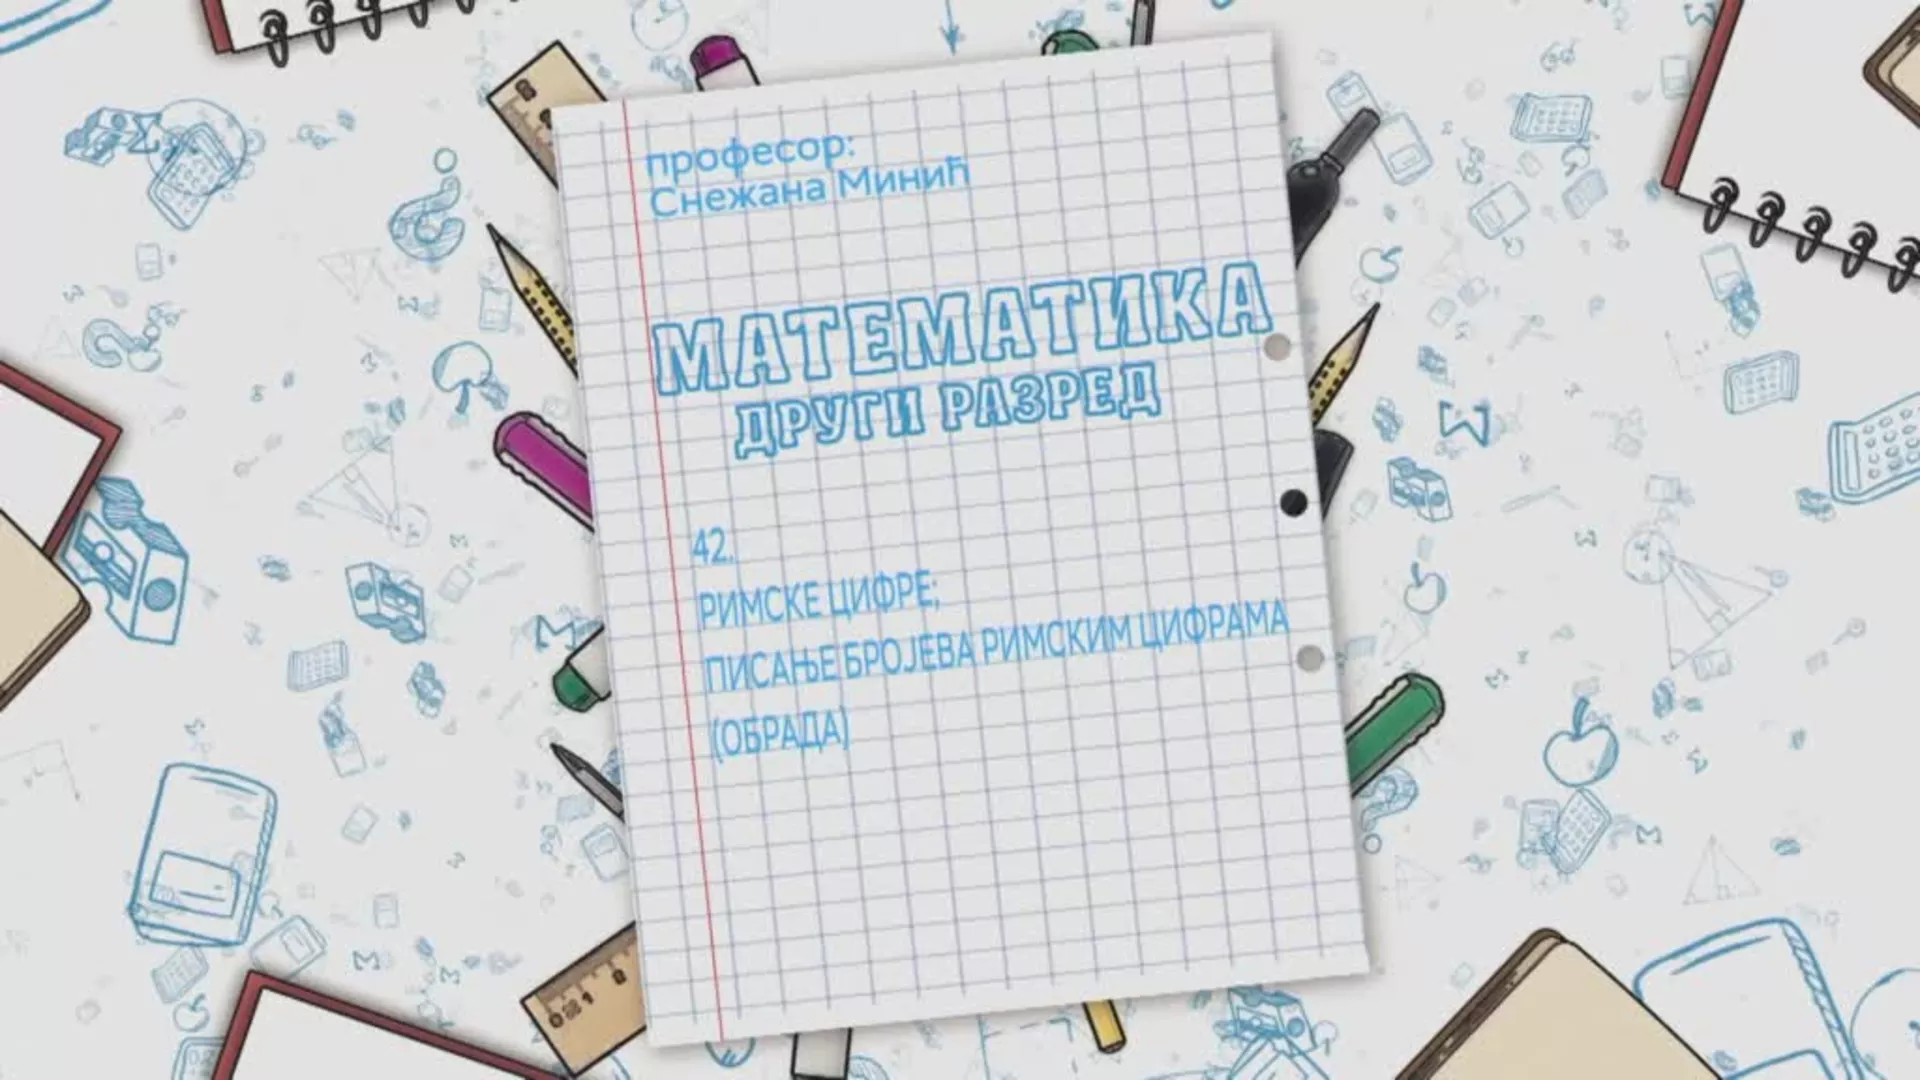 професор:
Снежана Минић
МАТЕМАТИКА
ДРУГИ РАЗРЕД
42.
РИМСКЕ ЦИФРЕ;
ПИСАЊЕ БРОЈЕВА РИМСКИМ ЦИФРАМА
(ОБРАДА)